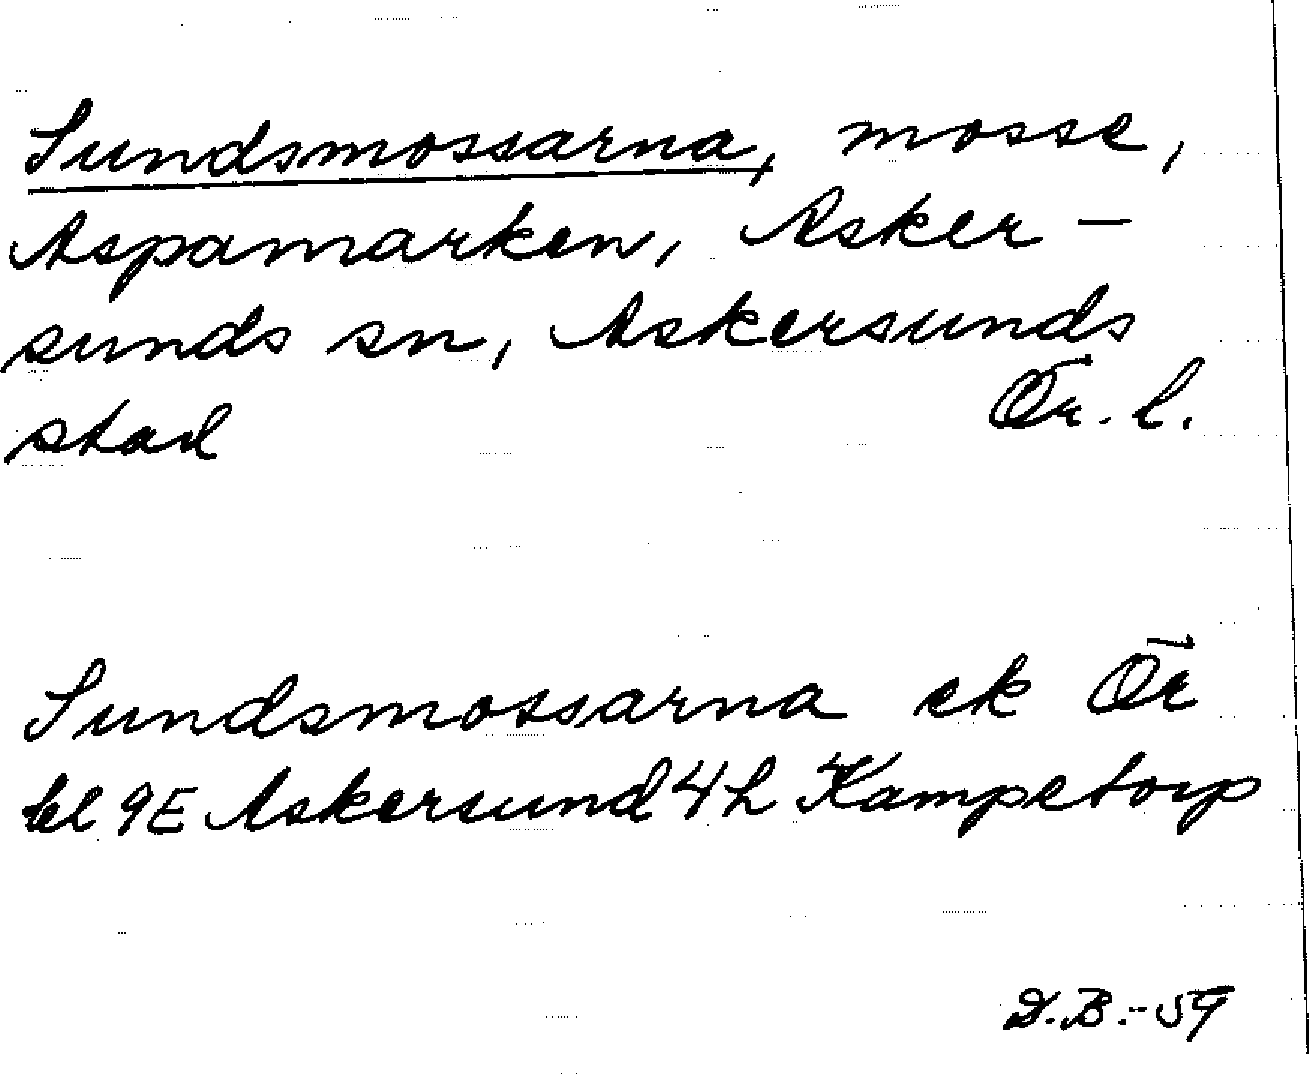 Sundsmossarna, mosse,
Aspamarken, Asker-
sunds sn, Askersunds
stad Ör. l.
Sundsmossarna ek Ör
bl 9E Askersund 4h Kampetorp
D.B.-59